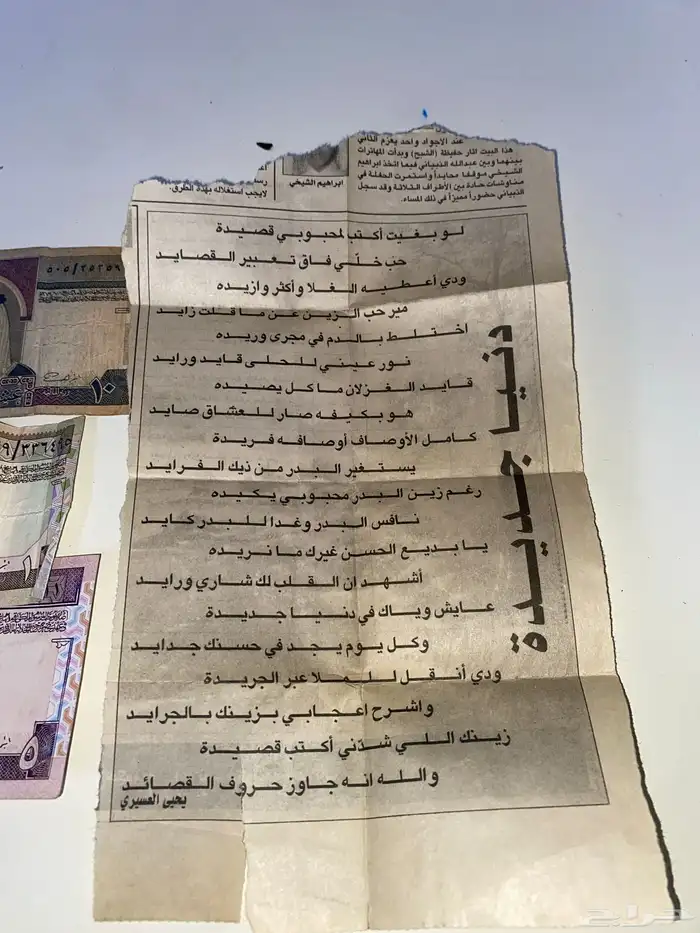 عند الاجواد واحد يعزم الثاني
هذا البيت اثار حفيظة (الشيخ) وبدأت المهاترات
بينهما وبين عبدالله الذيباني فيما اتخذ ابراهيم
الشيخي موقفا محايداً واستمرت الحفلة في
مناوشات حادة بين الأطراف الثلاثة وقد سجل
الذيباني حضوراً مميزاً في ذلك المساء.
ابراهيم الشيخي
لايجب استغلاله بهذه الطرق.
دنيا جديدة
لو بغيت أكتب لمحبوبي قصيدة
حب خلّي فاق تعبير القصايد
ودي أعطيه الغلا وأكثر وازيده
مير حب الزين عن ما قلت زايد
اختلط بالدم في مجرى وريده
نور عيني للحلى قايد ورايد
قايد الغزلان ما كل يصيده
هو بكيفه صار للعشاق صايد
كامل الأوصاف أوصافه فريدة
يستغير البدر من ذيك الفرايد
رغم زين البدر محبوبي يكيده
نافس البدر وغدا للبدر كايد
يا بديع الحسن غيرك ما نريده
أشهد ان القلب لك شاري ورايد
عايش وياك في دنيا جديدة
وكل يوم يجد في حسنك جدايد
ودي أنقل للملا عبر الجريدة
واشرح اعجابي بزينك بالجرايد
زينك اللي شدّني أكتب قصيدة
والله انه جاوز حروف القصائد
يحيى العسيري
٥٠٥/٢٥٢٥٩
١٠
٩/٢٣٦٤٩
١
٥
حراج